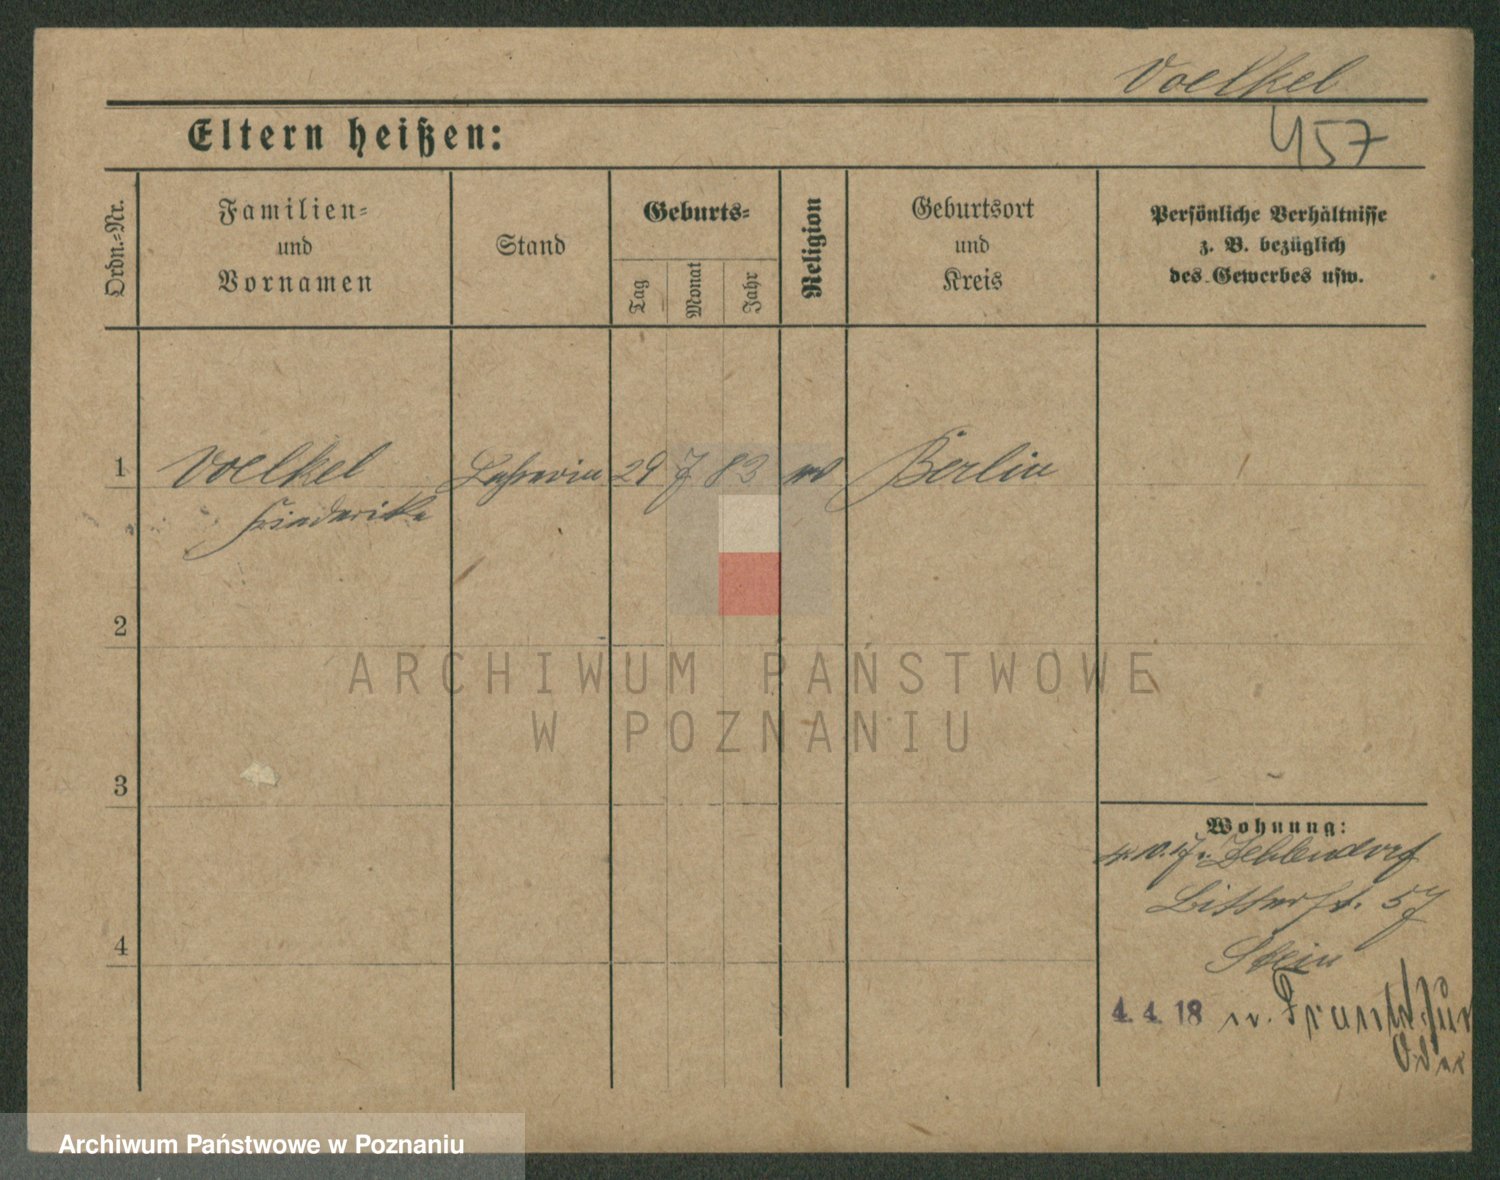 Voelkel
457
Eltern heißen:
Ordn.-Nr.
Familien-
und
Vornamen
Stand
Geburts-
Tag
Monat
Jahr
Religion
Geburtsort
und
Kreis
Persönliche Verhältnisse
z. B. bezüglich
des Gewerbes usw.
1 Voelkel 29 7 83 Berlin
Friederike
2
ARCHIWUM PAŃSTWOWE
W POZNANIU
3
Wohnung:
Zehlendorf
57
Stein
4
4. 4. 18 n. Frankfur
Oder
Archiwum Państwowe w Poznaniu